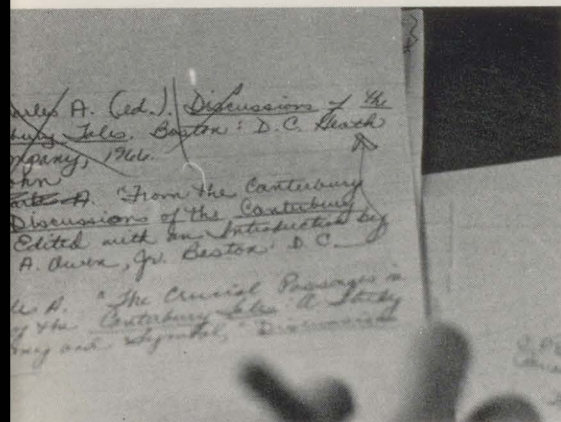 arles A. (ed.). Discussions of the
bury Tales. Boston: D.C. Heath
mpany, 1966.
ohn
A. "From the Canterbury
Discussions of the Canterbury
Edited with an Introduction by
A. Owen, Jr. Boston: D.C.
les A. "The Crucial Passages in
of the Canterbury Tales: A Study
ony and Symbol," Discussions